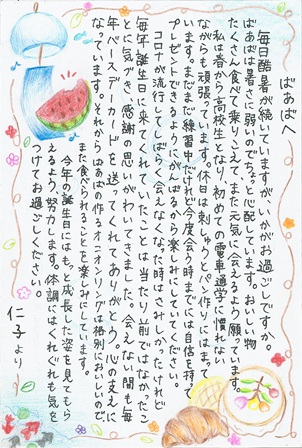 ばあばへ
毎日酷暑が続いていますが、いかがお過ごしですか。
ばあばは暑さに弱いのでちょっと心配しています。おいしい物
たくさん食べて乗りこえて、また元気に会えるよう願っています。
私は春から高校生となり、初めての電車通学に慣れない
ながらも頑張っています。休日は刺しゅうとパン作りにはまって
います。まだまだ練習中だけれど今度会う時までには自信を持って
プレゼントできるようにがんばるから楽しみにしていてください。
コロナが流行してしばらく会えなくなった時はさみしかったけれど
毎年誕生日に来てくれていたことは当たり前ではなかったこ
とに気づき、感謝の思いがわいてきました。会えない間も毎
年バースデーカードを送ってくれてありがとう。心の支えに
なっています。それからばあばの作るオニオンリングは格別においしいので、
また食べられることを楽しみにしています。
今年の誕生日にはもっと成長した姿を見てもら
えるよう、努力します。体調にはくれぐれも気を
つけてお過ごしください。
仁子より